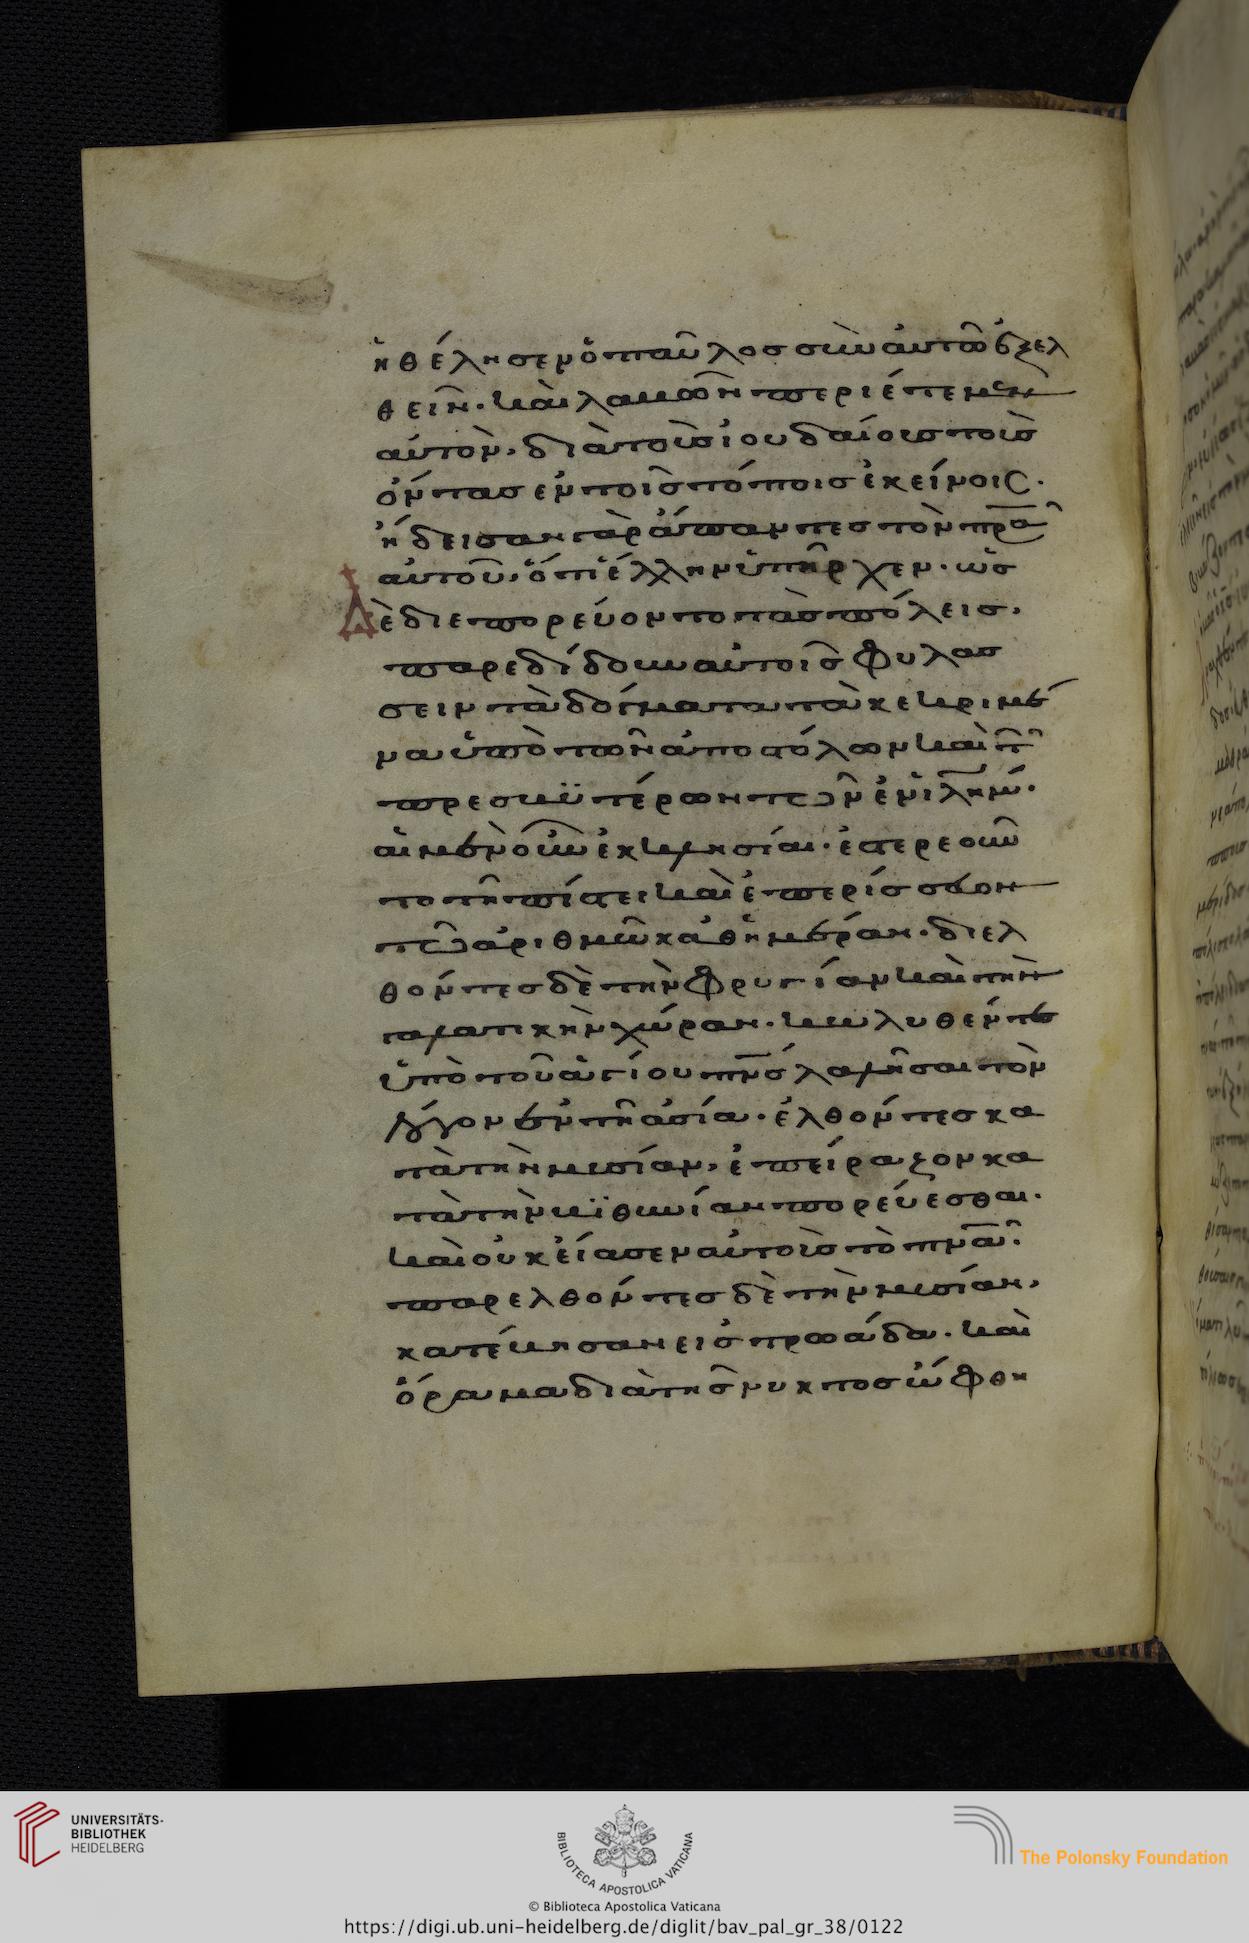 ἠθέλησεν ὁ παῦλος σὺν αὐτῶ ἐξελ
θεῖν. καὶ λαβὼν περιέτεμεν
αὐτὸν, διὰ τοὺς ἰουδαίους τοὺς
ὄντας ἐν τοῖς τόποις ἐκείνοις.
ἤδεισαν γὰρ ἅπαντες τὸν πρα
αὐτοῦ, ὅτι ἕλλην ὑπῆρχεν. ὡς
Δὲ διεπορεύοντο τὰς πόλεις,
παρεδίδουν αὐτοῖς φυλάσ
σειν τὰ δόγματα τὰ κεκριμέ
να ὑπὸ τῶν ἀποστόλων καὶ τ
πρεσβϋτέρων τῶν ἐν ἱλημ.
αἱ μὲν οὖν ἐκκλησίαι. ἐστερεοῦν
το τῆ πίστει καὶ ἐπερίσσευον
τῶ ἀριθμῶ καθ' ἡμέραν. διελ
θόντες δὲ τὴν φρυγίαν καὶ τὴν
γαλατικὴν χώραν. κωλυθέντες
ὑπὸ τοῦ ἁγίου πνς λαλῆσαι τὸν
λόγον ἐν τῆ ἀσία. ἐλθόντες κα
τὰ τὴν μυσίαν, ἐπείραζον κα
τὰ τὴν βϊθυνίαν πορεύεσθαι.
καὶ οὐκ εἴασεν αὐτοὺς τὸ πνα.
παρελθόντες δὲ τὴν μυσίαν,
κατέβησαν εἰς τρωάδα. καὶ
ὅραμα διὰ τῆς νυκτὸς ὤφθη
UNIVERSITÄTS-
BIBLIOTHEK
HEIDELBERG
BIBLIOTECA APOSTOLICA VATICANA
The Polonsky Foundation
© Biblioteca Apostolica Vaticana
https://digi.ub.uni-heidelberg.de/diglit/bav_pal_gr_38/0122